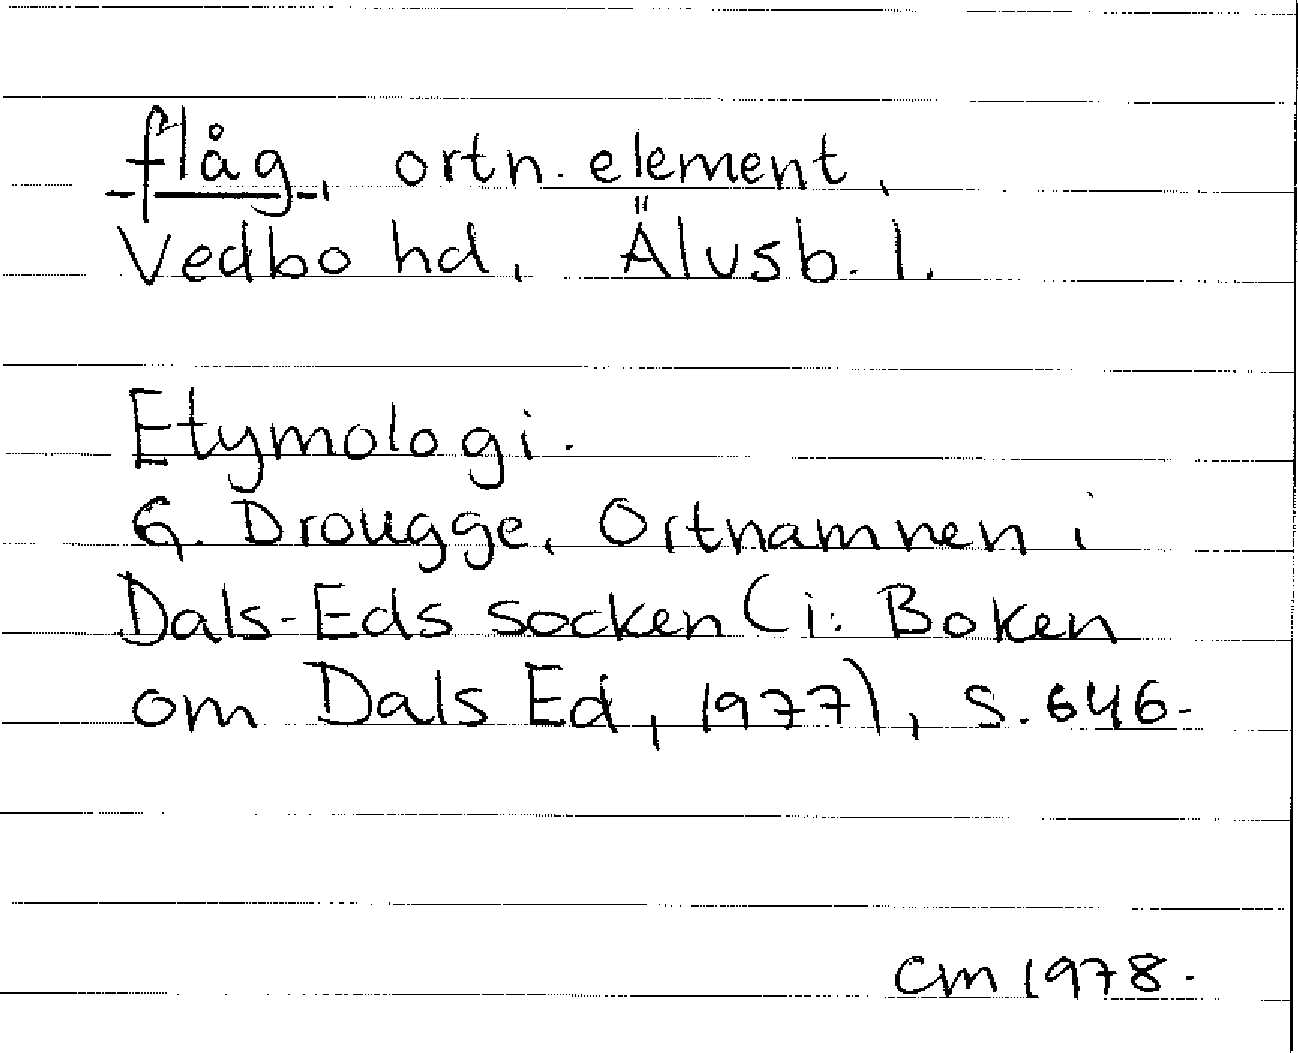 flåg, ortn. element,
Vedbo hd, Älvsb. l.
Etymologi.
G. Drougge, Ortnamnen i
Dals-Eds socken (i: Boken
om Dals Ed, 1977), s. 646.
CM 1978.